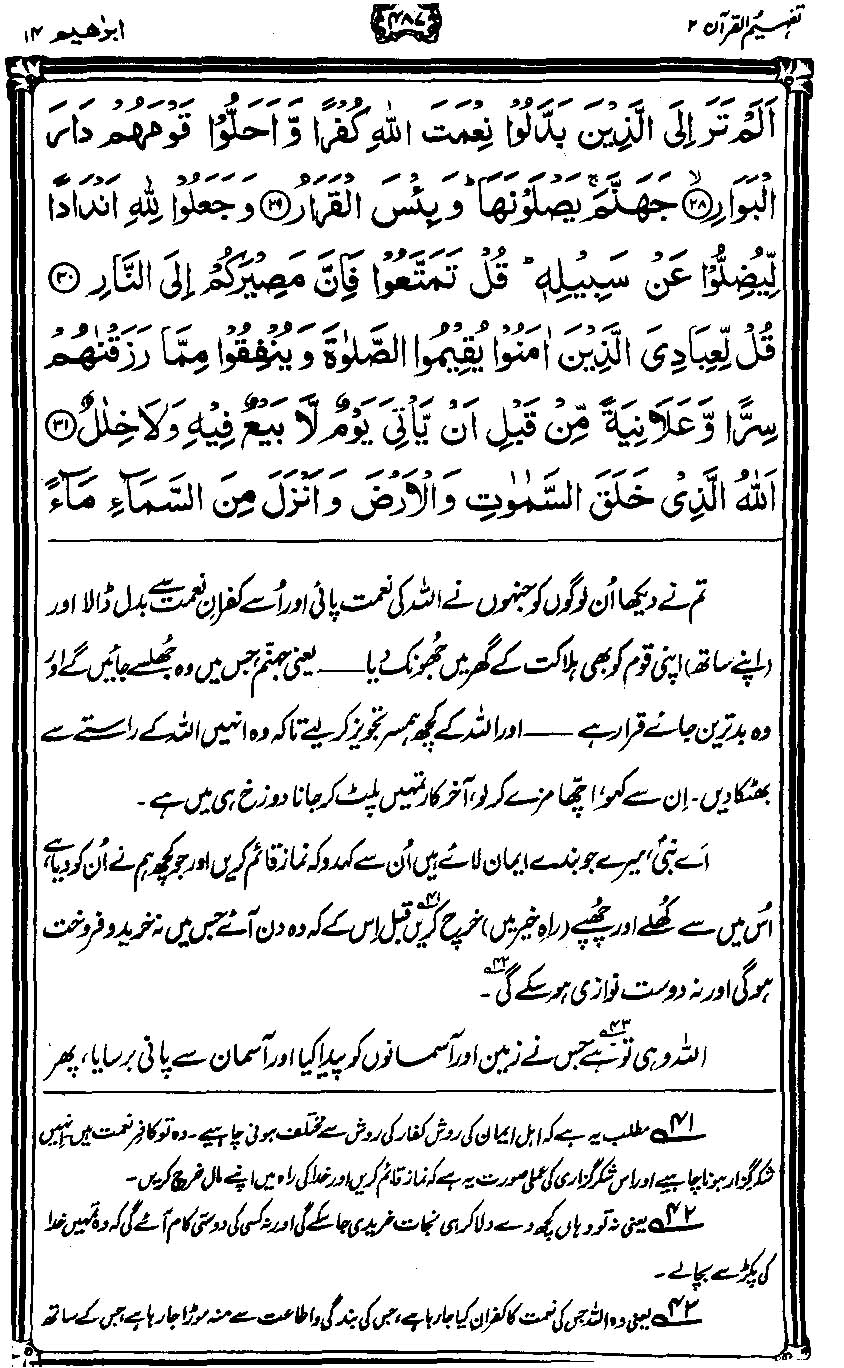 تفہیم القرآن ۲
۴۸۷
ابراھیم ۱۴
اَلَمْ تَرَ اِلَى الَّذِيْنَ بَدَّلُوْا نِعْمَتَ اللّٰهِ كُفْرًا وَّاَحَلُّوْا قَوْمَهُمْ دَارَ
الْبَوَارِ ۙ﴿۲۸﴾ جَهَنَّمَ ۚ يَصْلَوْنَهَا ؕ وَبِئْسَ الْقَرَارُ ﴿۲۹﴾ وَجَعَلُوْا لِلّٰهِ اَنْدَادًا
لِّيُضِلُّوْا عَنْ سَبِيْلِهٖ ؕ قُلْ تَمَتَّعُوْا فَاِنَّ مَصِيْرَكُمْ اِلَى النَّارِ ﴿۳۰﴾
قُلْ لِّعِبَادِيَ الَّذِيْنَ اٰمَنُوْا يُقِيْمُوا الصَّلٰوةَ وَيُنْفِقُوْا مِمَّا رَزَقْنٰهُمْ
سِرًّا وَّعَلَانِيَةً مِّنْ قَبْلِ اَنْ يَّاْتِيَ يَوْمٌ لَّا بَيْعٌ فِيْهِ وَلَا خِلٰلٌ ﴿۳۱﴾
اَللّٰهُ الَّذِيْ خَلَقَ السَّمٰوٰتِ وَالْاَرْضَ وَاَنْزَلَ مِنَ السَّمَآءِ مَآءً
تم نے دیکھا اُن لوگوں کو جنہوں نے اللہ کی نعمت پائی اور اُسے کفرانِ نعمت سے بدل ڈالا اور
(اپنے ساتھ) اپنی قوم کو بھی ہلاکت کے گھر میں جھونک دیا ــــ یعنی جہنّم، جس میں وہ جُھلسے جائیں گے اور
وہ بدترین جائے قرار ہے ــــ اور اللہ کے کچھ ہمسر تجویز کر لیے تاکہ وہ انہیں اللہ کے راستے سے
بھٹکا دیں۔ اِن سے کہو، اچھّا مزے کر لو، آخرکار تمہیں پلٹ کر جانا دوزخ ہی میں ہے۔
اَے نبیؐ، میرے جو بندے ایمان لائے ہیں اُن سے کہدو کہ نماز قائم کریں اور جو کچھ ہم نے اُن کو دیا ہے،
اُس میں سے کُھلے اور چُھپے (راہِ خیر میں) خرچ کریں۴۱ قبل اِس کے کہ وہ دن آئے جس میں نہ خرید و فروخت
ہوگی اور نہ دوست نوازی ہو سکے گی۴۲۔
اللہ وہی تو۴۳ ہے جس نے زمین اور آسمانوں کو پیدا کیا اور آسمان سے پانی برسایا، پھر
۴۱ مطلب یہ ہے کہ اہل ایمان کی روش کفار کی روش سے مختلف ہونی چاہیے۔ وہ تو کافرِ نعمت ہیں۔ اِنہیں
شکر گزار ہونا چاہیے اور اس شکر گزاری کی عملی صورت یہ ہے کہ نماز قائم کریں اور خدا کی راہ میں اپنے مال خرچ کریں۔
۴۲ یعنی نہ تو وہاں کچھ دے دلا کر ہی نجات خریدی جا سکے گی اور نہ کسی کی دوستی کام آئے گی کہ وہ تمہیں خدا
کی پکڑ سے بچالے۔
۴۳ یعنی وہ اللہ جس کی نعمت کا کفران کیا جا رہا ہے، جس کی بندگی و اطاعت سے منہ موڑا جا رہا ہے، جس کے ساتھ